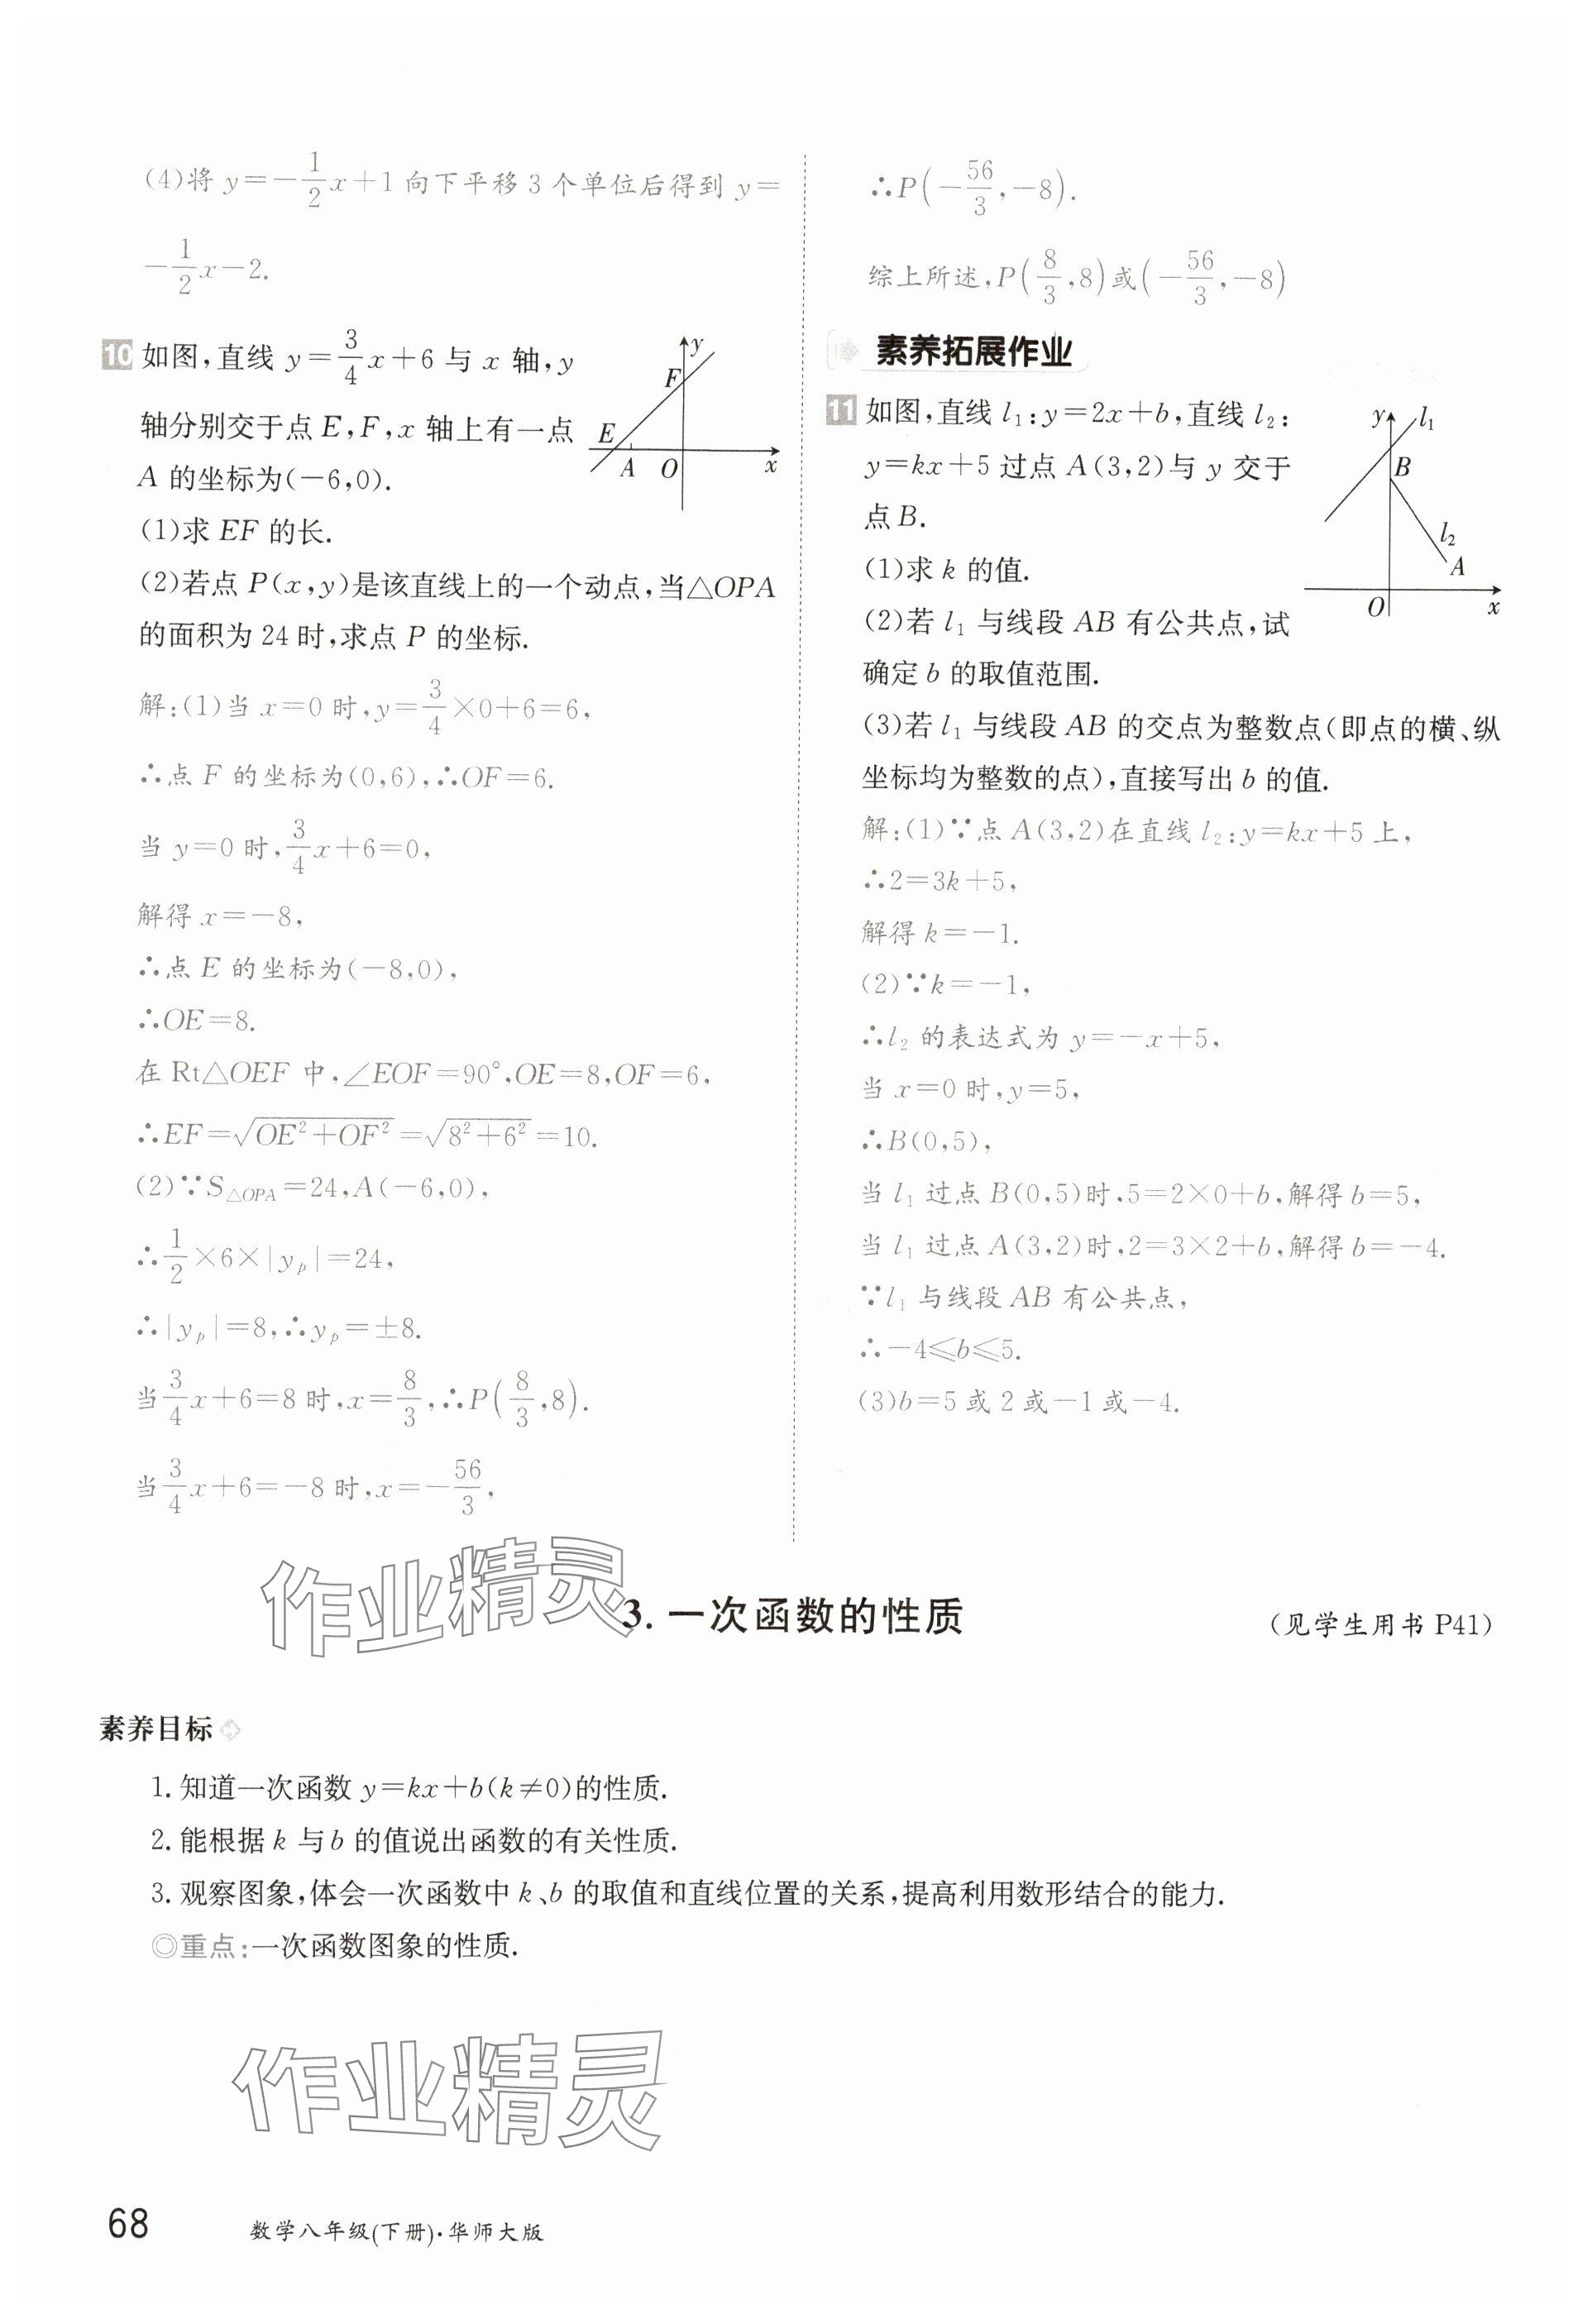 (4)将 y=-1/2x+1 向下平移 3 个单位后得到 y=
-1/2x-2.
10 如图,直线 y=3/4x+6 与 x 轴,y
轴分别交于点 E,F,x 轴上有一点
A 的坐标为(-6,0).
(1)求 EF 的长.
(2)若点 P(x,y)是该直线上的一个动点,当△OPA
的面积为 24 时,求点 P 的坐标.
y
F
E
A
O
x
解:(1)当 x=0 时,y=3/4×0+6=6,
∴点 F 的坐标为(0,6),∴OF=6.
当 y=0 时,3/4x+6=0,
解得 x=-8,
∴点 E 的坐标为(-8,0),
∴OE=8.
在 Rt△OEF 中,∠EOF=90°,OE=8,OF=6,
∴EF=√(OE²+OF²)=√(8²+6²)=10.
(2)∵S△OPA=24,A(-6,0),
∴1/2×6×|yₚ|=24,
∴|yₚ|=8,∴yₚ=±8.
当3/4x+6=8 时,x=8/3,∴P(8/3,8).
当3/4x+6=-8 时,x=-56/3,
∴P(-56/3,-8).
综上所述,P(8/3,8)或(-56/3,-8)
素养拓展作业
11 如图,直线 l₁:y=2x+b,直线 l₂:
y=kx+5 过点 A(3,2)与 y 交于
点 B.
(1)求 k 的值.
(2)若 l₁ 与线段 AB 有公共点,试
确定 b 的取值范围.
(3)若 l₁ 与线段 AB 的交点为整数点(即点的横、纵
坐标均为整数的点),直接写出 b 的值.
y
l₁
B
l₂
A
O
x
解:(1)∵点 A(3,2)在直线 l₂:y=kx+5 上,
∴2=3k+5,
解得 k=-1.
(2)∵k=-1,
∴l₂ 的表达式为 y=-x+5,
当 x=0 时,y=5,
∴B(0,5),
当 l₁ 过点 B(0,5)时,5=2×0+b,解得 b=5,
当 l₁ 过点 A(3,2)时,2=3×2+b,解得 b=-4.
∵l₁ 与线段 AB 有公共点,
∴-4≤b≤5.
(3)b=5 或 2 或-1 或-4.
作业精灵
3. 一次函数的性质
(见学生用书 P41)
素养目标
1. 知道一次函数 y=kx+b(k≠0)的性质.
2. 能根据 k 与 b 的值说出函数的有关性质.
3. 观察图象,体会一次函数中 k、b 的取值和直线位置的关系,提高利用数形结合的能力.
◎重点:一次函数图象的性质.
作业精灵
68
数学八年级(下册)·华师大版